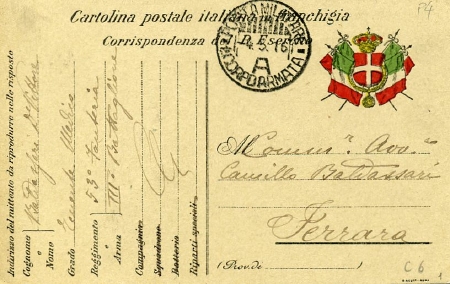 P4
Cartolina postale italiana in franchigia
Corrispondenza
POSTA MILITARE
5 16
A
CORPO D'ARMATA
Indirizzo del mittente da riprodurre nelle risposte
Cognome
Nome
Grado Tenente Medico
Reggimento 53° Fanteria
Arma III° Battaglione
Compagnia
Squadrone
Batteria
Riparti speciali
Avv.
Camillo Baldassari
Ferrara
(Prov. de )
C6
1